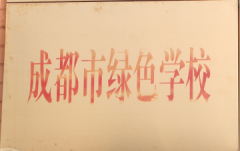 成都市绿色学校